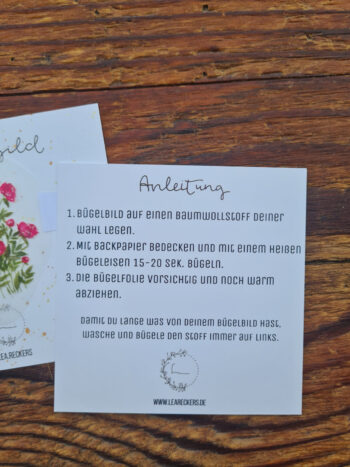 Anleitung
1. Bügelbild auf einen Baumwollstoff deiner
Wahl legen.
2. Mit Backpapier bedecken und mit einem heißen
Bügeleisen 15-20 Sek. bügeln.
3. Die Bügelfolie vorsichtig und noch warm
abziehen.
Damit du lange was von deinem Bügelbild hast,
wasche und bügele den Stoff immer auf links.
WWW.LEARECKERS.DE